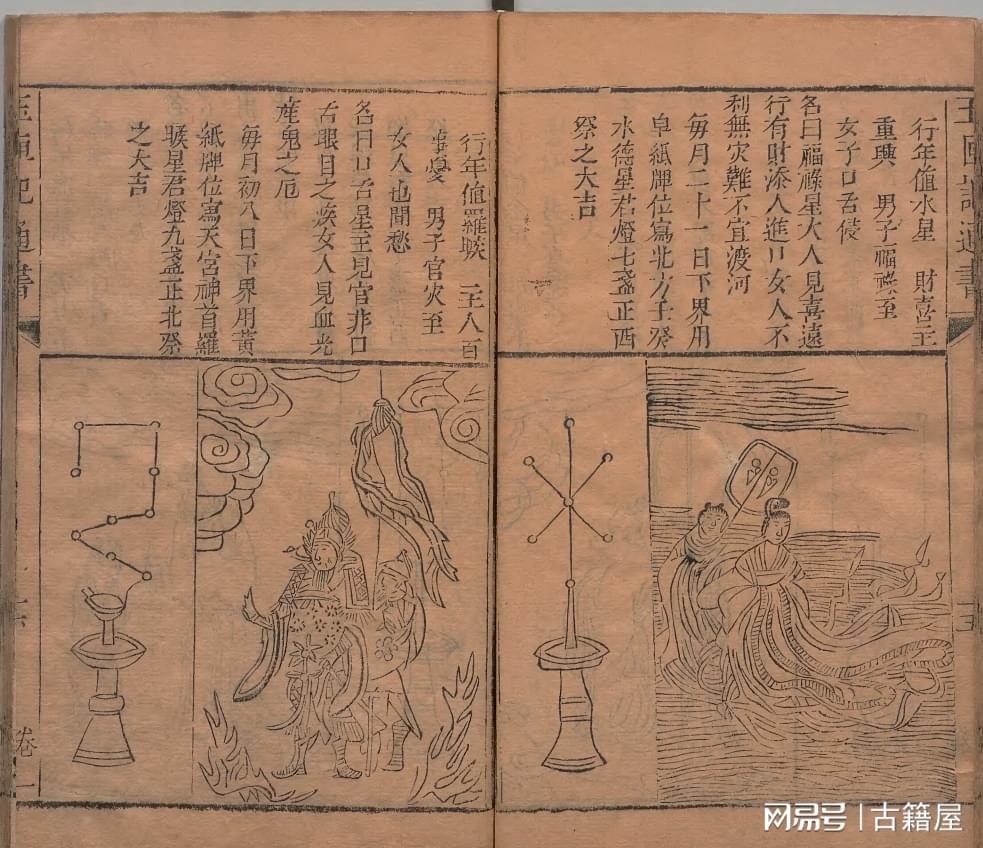 玉匣記通書
行年值水星　財喜主
重興　男子福祿至
女子口舌侵
名曰福祿星大人見喜遠
行有財添人進口女人不
利無灾難不宜渡河
每月二十一日下界用
皁紙牌位寫北方壬癸
水德星君燈七盞正西
祭之大吉
五
行年值羅睺　主人百
事憂　男子官灾至
女人也閙愁
名曰口舌星主見官非口
舌眼目之疾女人見血光
産鬼之厄
每月初八日下界用黃
紙牌位寫天宮神首羅
睺星君燈九盞正北祭
之大吉
玉匣記通書
卷一
六
网易号 | 古籍屋